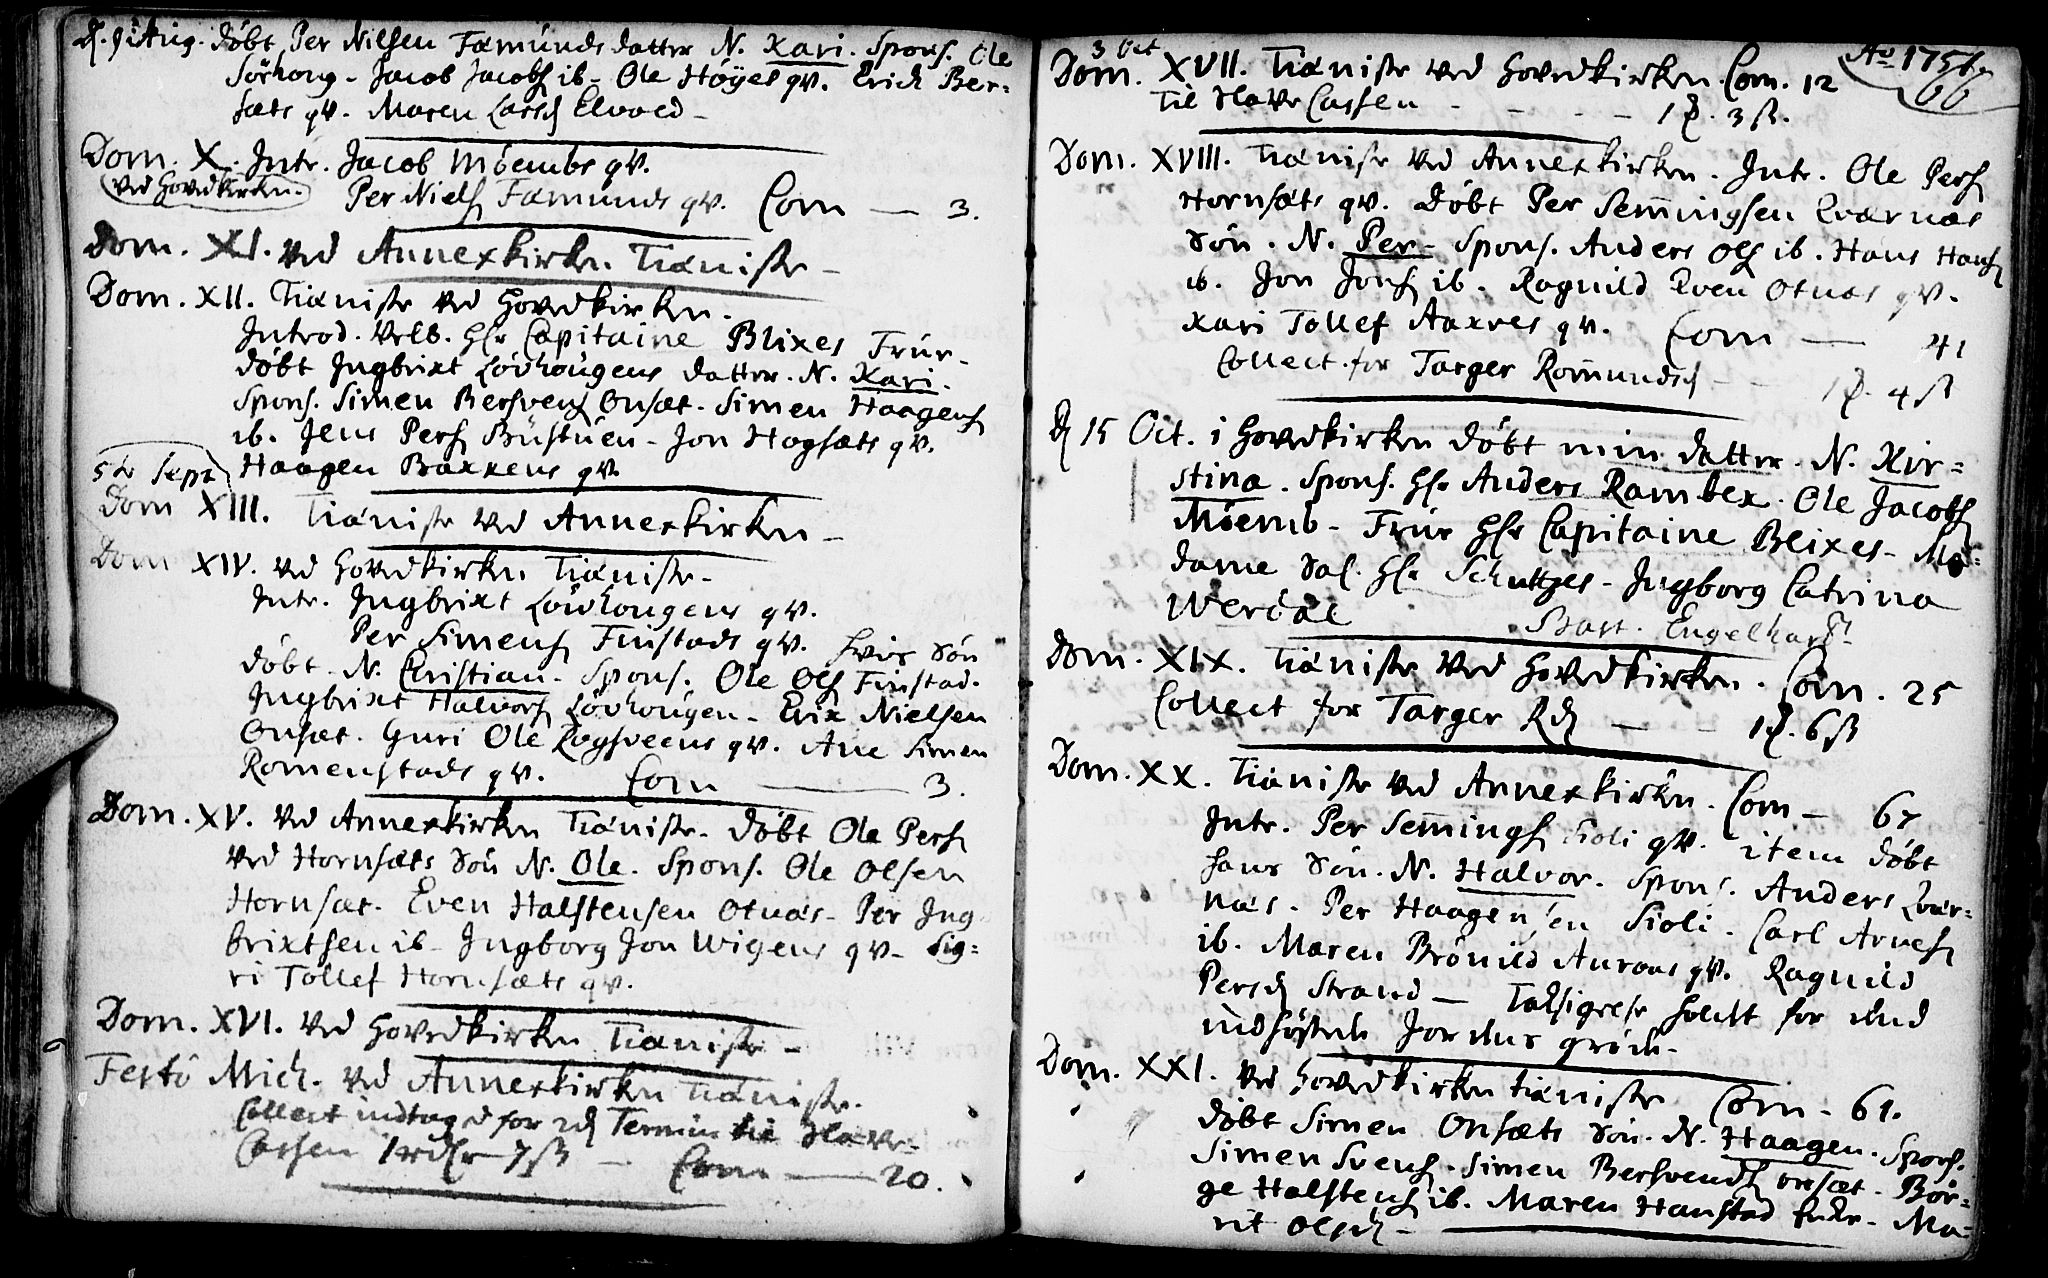 D. 9 Aug. døbt Per Nilsen Fæmunds datter N. Kari. Spons. Ole
Sörhoug - Jacob Jacobs ib - Ole Høyes qv. Erich Ber-
sæts qv. Maren Larsd Elvold -
Dom. X. Intr. Jacob Möembs qv.
Ved Hovedkirken. Per Niels Fæmunds qv. Com — 3.
Dom. XI. ved Annexkirken Tieniste -
Dom. XII. Tieniste ved Hovedkirken.
Introd. Velb. Hr Capitaine Blixes Frue -
døbt Ingbrixt Lövhougens datter. N. Kari.
Spons. Simen Bersvens Onsæt. Simen Haagens
ib. Jens Pers Bustuen - Jon Hogsæts qv.
Haagen Baxxens qv.
5te Sept
Dom XIII. Tieniste ved Annexkirken -
Dom XIV. ved Hovedkirken Tieniste -
Intr. Ingbrixt Lövhougens qv.
Per Simens Finstads qv. hvis Sön
døbt - N. Christian - Spons. Ole Ols Finstad.
Ingbrixt Halvors Lövhougen - Erix Nielsen
Onsæt. Guri Ole Rogsveens qv. Ane Simen
Romenstads qv. Com — 3.
Dom. XV. ved Annexkirken Tieniste. døbt Ole Pers
ved Hornsæts Sön N. Ole. Spons. Ole Olsen
Hornsæt. Even Halstensen Otnæs - Per Ing
brixtsen ib - Ingborg Jon Wigens qv - Sig-
ri Tollef Hornsæts qv.
Dom. XVI. ved Hovedkirken Tieniste -
Festo Mich. ved Annexkirken Tieniste.
Collect indtaged for 2d Termin til
Cassen 1 rdlr 7 ß — Com — 20.
Ao 1751.
66
3 Oct
Dom. XVII. Tieniste ved Hovedkirken. Com. 12
til Cassen - - - 1 . 3 ß.
Dom. XVIII. Tieniste ved Annexkirken. Intr. Ole Pers
Hornsæts qv. døbt Per Semingsen Qværnæs
Sön. N. Per - Spons. Anders Ols ib. Hans Hans
ib. Jon Jons ib. Ragnild Even Otnæs qv.
Kari Tollef Aaxres qv. Com — 41
Collect for Targer Romundsd - - 1 . 4 ß
D 15 Oct. i Hovedkirken døbt min datter. N. Kir-
stina. Spons. Hr Anders Rambex. Ole Jacobs
Möemb - Frue Hr Capitaine Blixes - Ma-
dame Sal. Hr Schuttges - Ingborg Catrina
Werdal Bart. Engelhardt
Dom. XIX. Tieniste ved Hovedkirken. Com. 25
Collect for Targer Rd — - 1 . 6 ß
Dom. XX. Tieniste ved Annexkirken. Com — 67
Intr. Per Semings Sioli qv. item døbt
hans Sön. N. Halvor. Spons. Anders Qvær-
næs. Per Haagensen Sioli. Carl Arnes
ib. Maren Brönild Auraas qv. Ragnild
Persd Strand — Taksigelse holdt for end
indhøstede Jordens grøde -
Dom. XXI. ved Hovedkirken tieniste Com - 61.
døbt Simen Onsæts Sön. N. Haagen. Spons.
Simen Svens. Simen Bersvends Onsæt. Bör-
ge Halstens ib. Maren Hanstad - Ma-
rit Olsd -